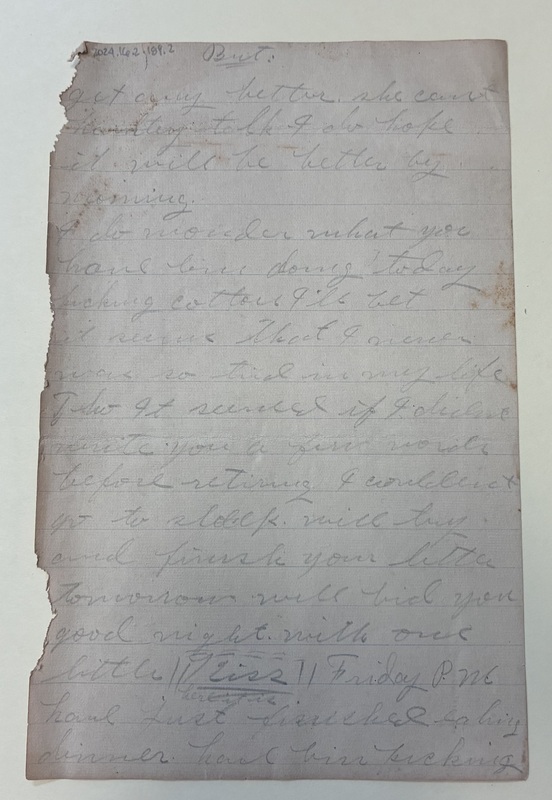 2024.162.189.2
But.
get any better. she cant
hardley talk I do hope
it will be better by
morning.
I do wonder what you
have bin doing today
picking cotton I'll bet
it seems that I never
was so tird in my life
Tho it seemed if I didnt
write you a few words
before retiring I couldent
go to sleep. will try
and finish your letter
tomorrow will bid you
good night. with one
little || Kiss || Friday P.M
here it is
have just finished eating
dinner. have bin picking